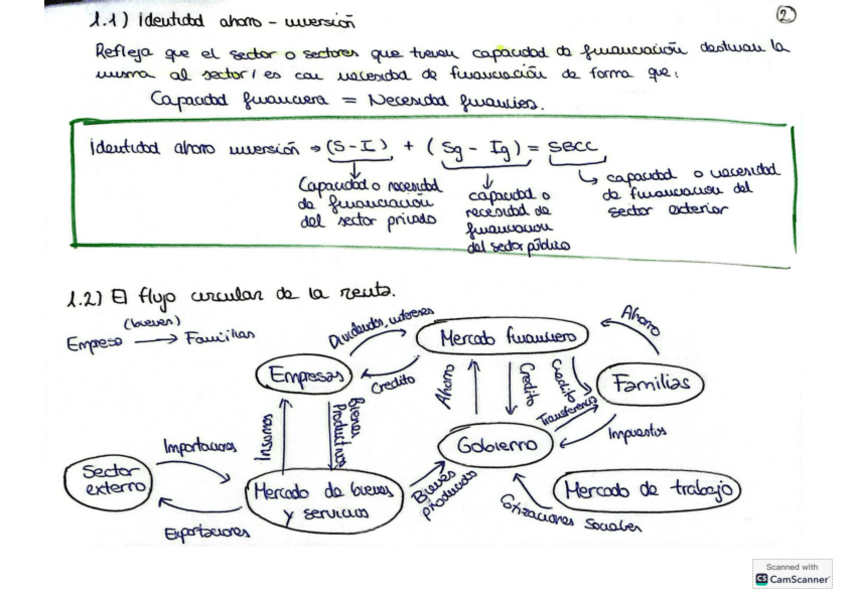 2
1.1) Identidad ahorro - inversión
Refleja que el sector o sectores que tienen capacidad de financiación destinan la
misma al sector/es con necesidad de financiación de forma que:
Capacidad financiera = Necesidad financiera.
identidad ahorro inversión → (S-I) + (Sg - Ig) = SBCC
Capacidad o necesidad
de financiación
del sector privado
capacidad o
necesidad de
financiación
del sector público
capacidad o necesidad
de financiación del
sector exterior
1.2) El flujo circular de la renta.
(bienes)
Empresa → Familias
Dividendos, intereses
Mercado financiero
Ahorro
Empresas
Credito
Ahorro
Credito
Credito
Familias
Transferencias
Insumos
Bienes
Productivos
Gobierno
Impuestos
Importaciones
Sector
externo
Mercado de bienes
y servicios
Bienes
producidos
Mercado de trabajo
Cotizaciones Sociales
Exportaciones
Scanned with
CS CamScanner